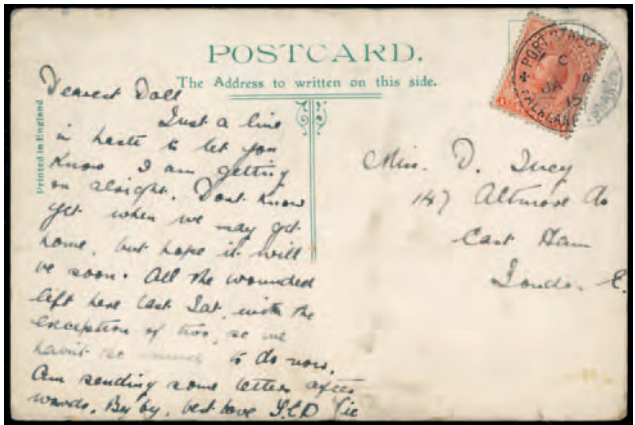 POSTCARD.
The Address to written on this side.
Printed in England
Dearest Doll
Just a line
in haste to let you
know I am getting
on alright. Dont know
yet when we may get
home, but hope it will
be soon. All the wounded
left here last Sat, with the
exception of two, so we
havnt so to do now.
Am sending some letters after
wards. By by, best love
Miss. D.
147 Av
East Ham
London. E.
PORT STANLEY
C
JA
15
FALKLAND ISLANDS